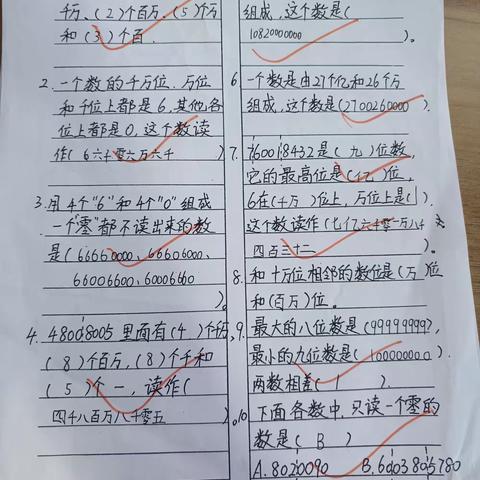 千万、(2)个百万、(5)个万
和(3)个百.
2.一个数的千万位、万位
和千位上都是6,其他各
位上都是0,这个数读
作(6六千零六万六千)
3.用4个"6"和4个"0"组成
一个"零"都不读出来的数
是(66660000、66606000、
66006600、60006660
)。
4.48008005里面有(4)个千万,
(8)个百万,(8)个千和
(5)个一,读作(
四千八百万八千零五)。
组成,这个数是(
1082000000)。
6一个数是由27个亿和26个万
组成,这个数是(2700260000).
7.760018432是(九)位数,
它的最高位是(亿)位,
6在(千万)位上,万位上是(1)
这个数读作(七亿六千零一万八千
四百三十二)。
8.和十万位相邻的数位是(万)位
和(百万)位。
9.最大的八位数是(99999999),
最小的九位数是(100000000).
两数相差(1).
10下面各数中,只读一个零的
数是(B)
A.8020090 B.6003805780